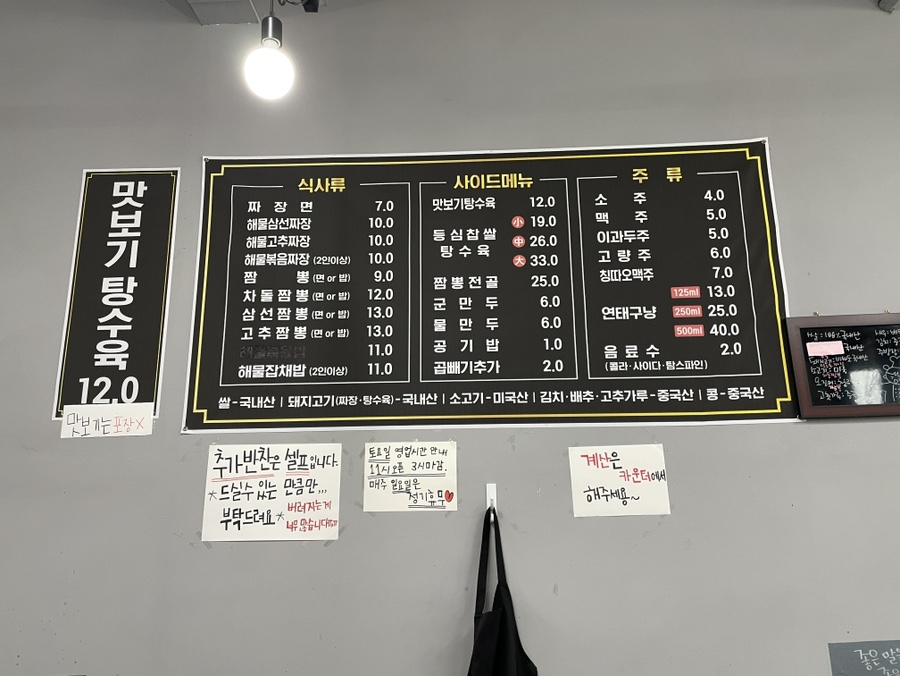 맛보기 탕수육
12.0
맛보기는 포장X
식사류
짜장면 7.0
해물삼선짜장 10.0
해물고추짜장 10.0
해물볶음짜장 (2인이상) 10.0
짬뽕 (면 or 밥) 9.0
차돌짬뽕 (면 or 밥) 12.0
삼선짬뽕 (면 or 밥) 13.0
고추짬뽕 (면 or 밥) 13.0
11.0
해물잡채밥 (2인이상) 11.0
사이드메뉴
맛보기탕수육 12.0
등심찹쌀탕수육
小 19.0
中 26.0
大 33.0
짬뽕전골 25.0
군만두 6.0
물만두 6.0
공기밥 1.0
곱빼기추가 2.0
주류
소주 4.0
맥주 5.0
이과두주 5.0
고량주 6.0
칭따오맥주 7.0
연태구냥
125ml 13.0
250ml 25.0
500ml 40.0
음료수 2.0
(콜라·사이다·탐스파인)
쌀-국내산 | 돼지고기(짜장·탕수육)-국내산 | 소고기-미국산 | 김치·배추·고추가루-중국산 | 콩-중국산
추가반찬은 셀프입니다.
*드실수 있는 만큼만,,,
부탁드려요*
버려지는게
너무 많습니다
토요일 영업시간 안내
11시오픈 3시마감.
매주 일요일은
정기휴무♥
계산은
카운터에서
해주세용~
좋은말